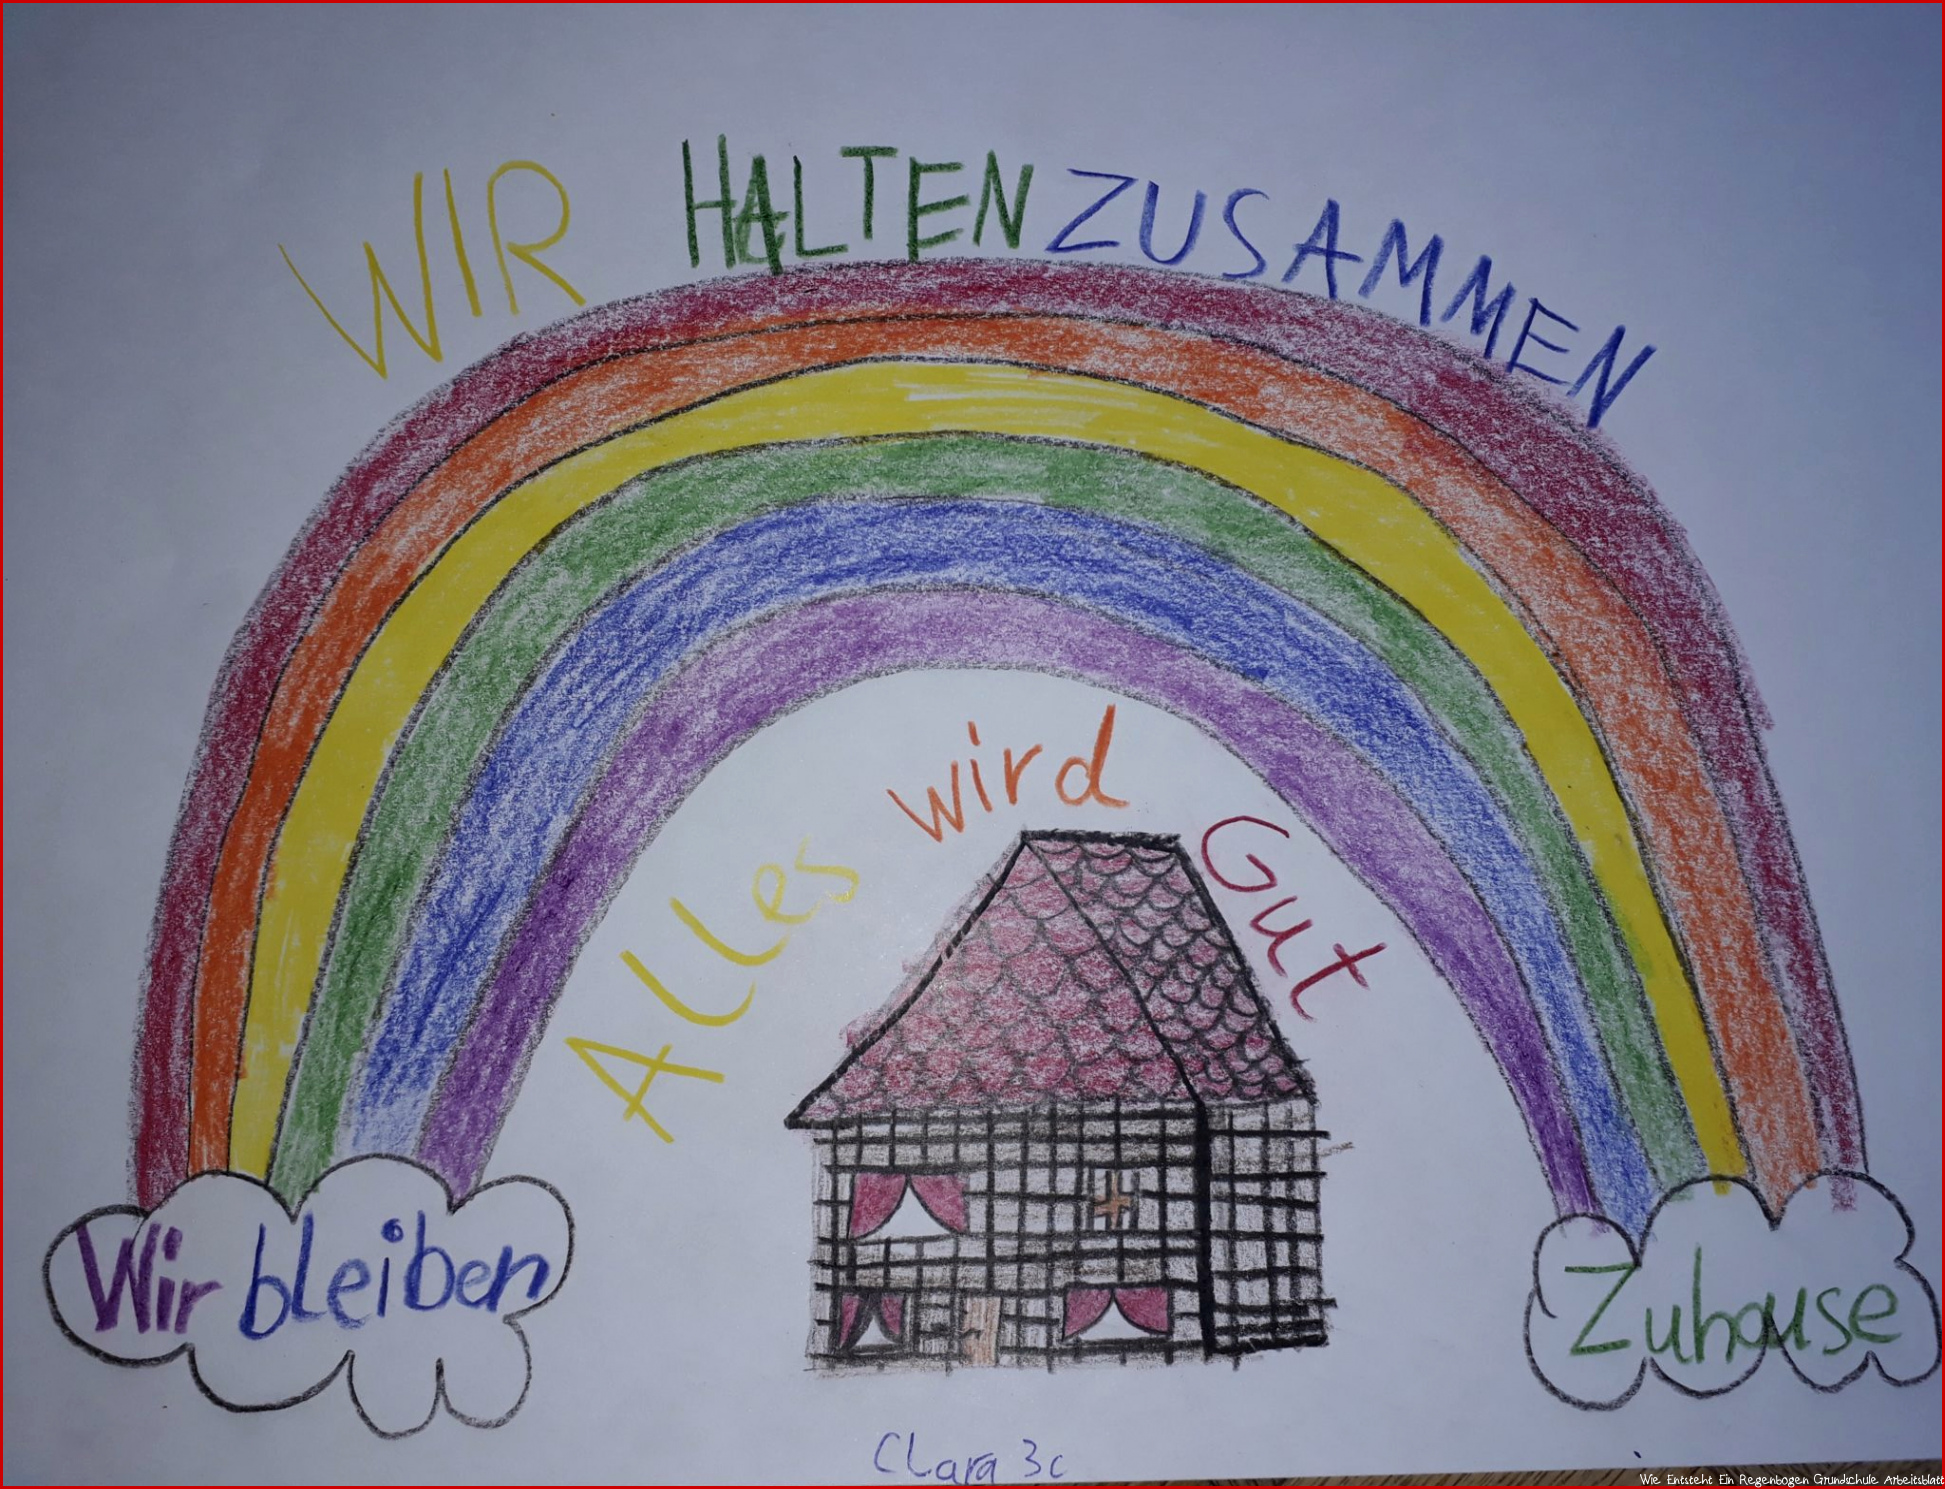 WIR HALTEN ZUSAMMEN
Alles wird Gut
Wir bleiben
Zuhause
Clara 3c
Wie Entsteht Ein Regenbogen Grundschule Arbeitsblatt